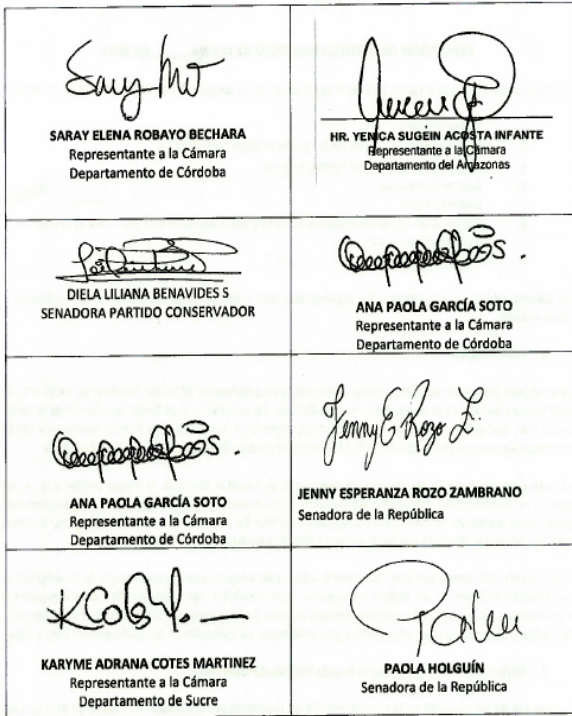 Saray
SARAY ELENA ROBAYO BECHARA
Representante a la Cámara
Departamento de Córdoba
HR. YENICA SUGEIN ACOSTA INFANTE
Representante a la Cámara
Departamento del Amazonas
DIELA LILIANA BENAVIDES S
SENADORA PARTIDO CONSERVADOR
ANA PAOLA GARCÍA SOTO
Representante a la Cámara
Departamento de Córdoba
ANA PAOLA GARCÍA SOTO
Representante a la Cámara
Departamento de Córdoba
Jenny E Rozo Z.
JENNY ESPERANZA ROZO ZAMBRANO
Senadora de la República
KARYME ADRANA COTES MARTINEZ
Representante a la Cámara
Departamento de Sucre
PAOLA HOLGUÍN
Senadora de la República